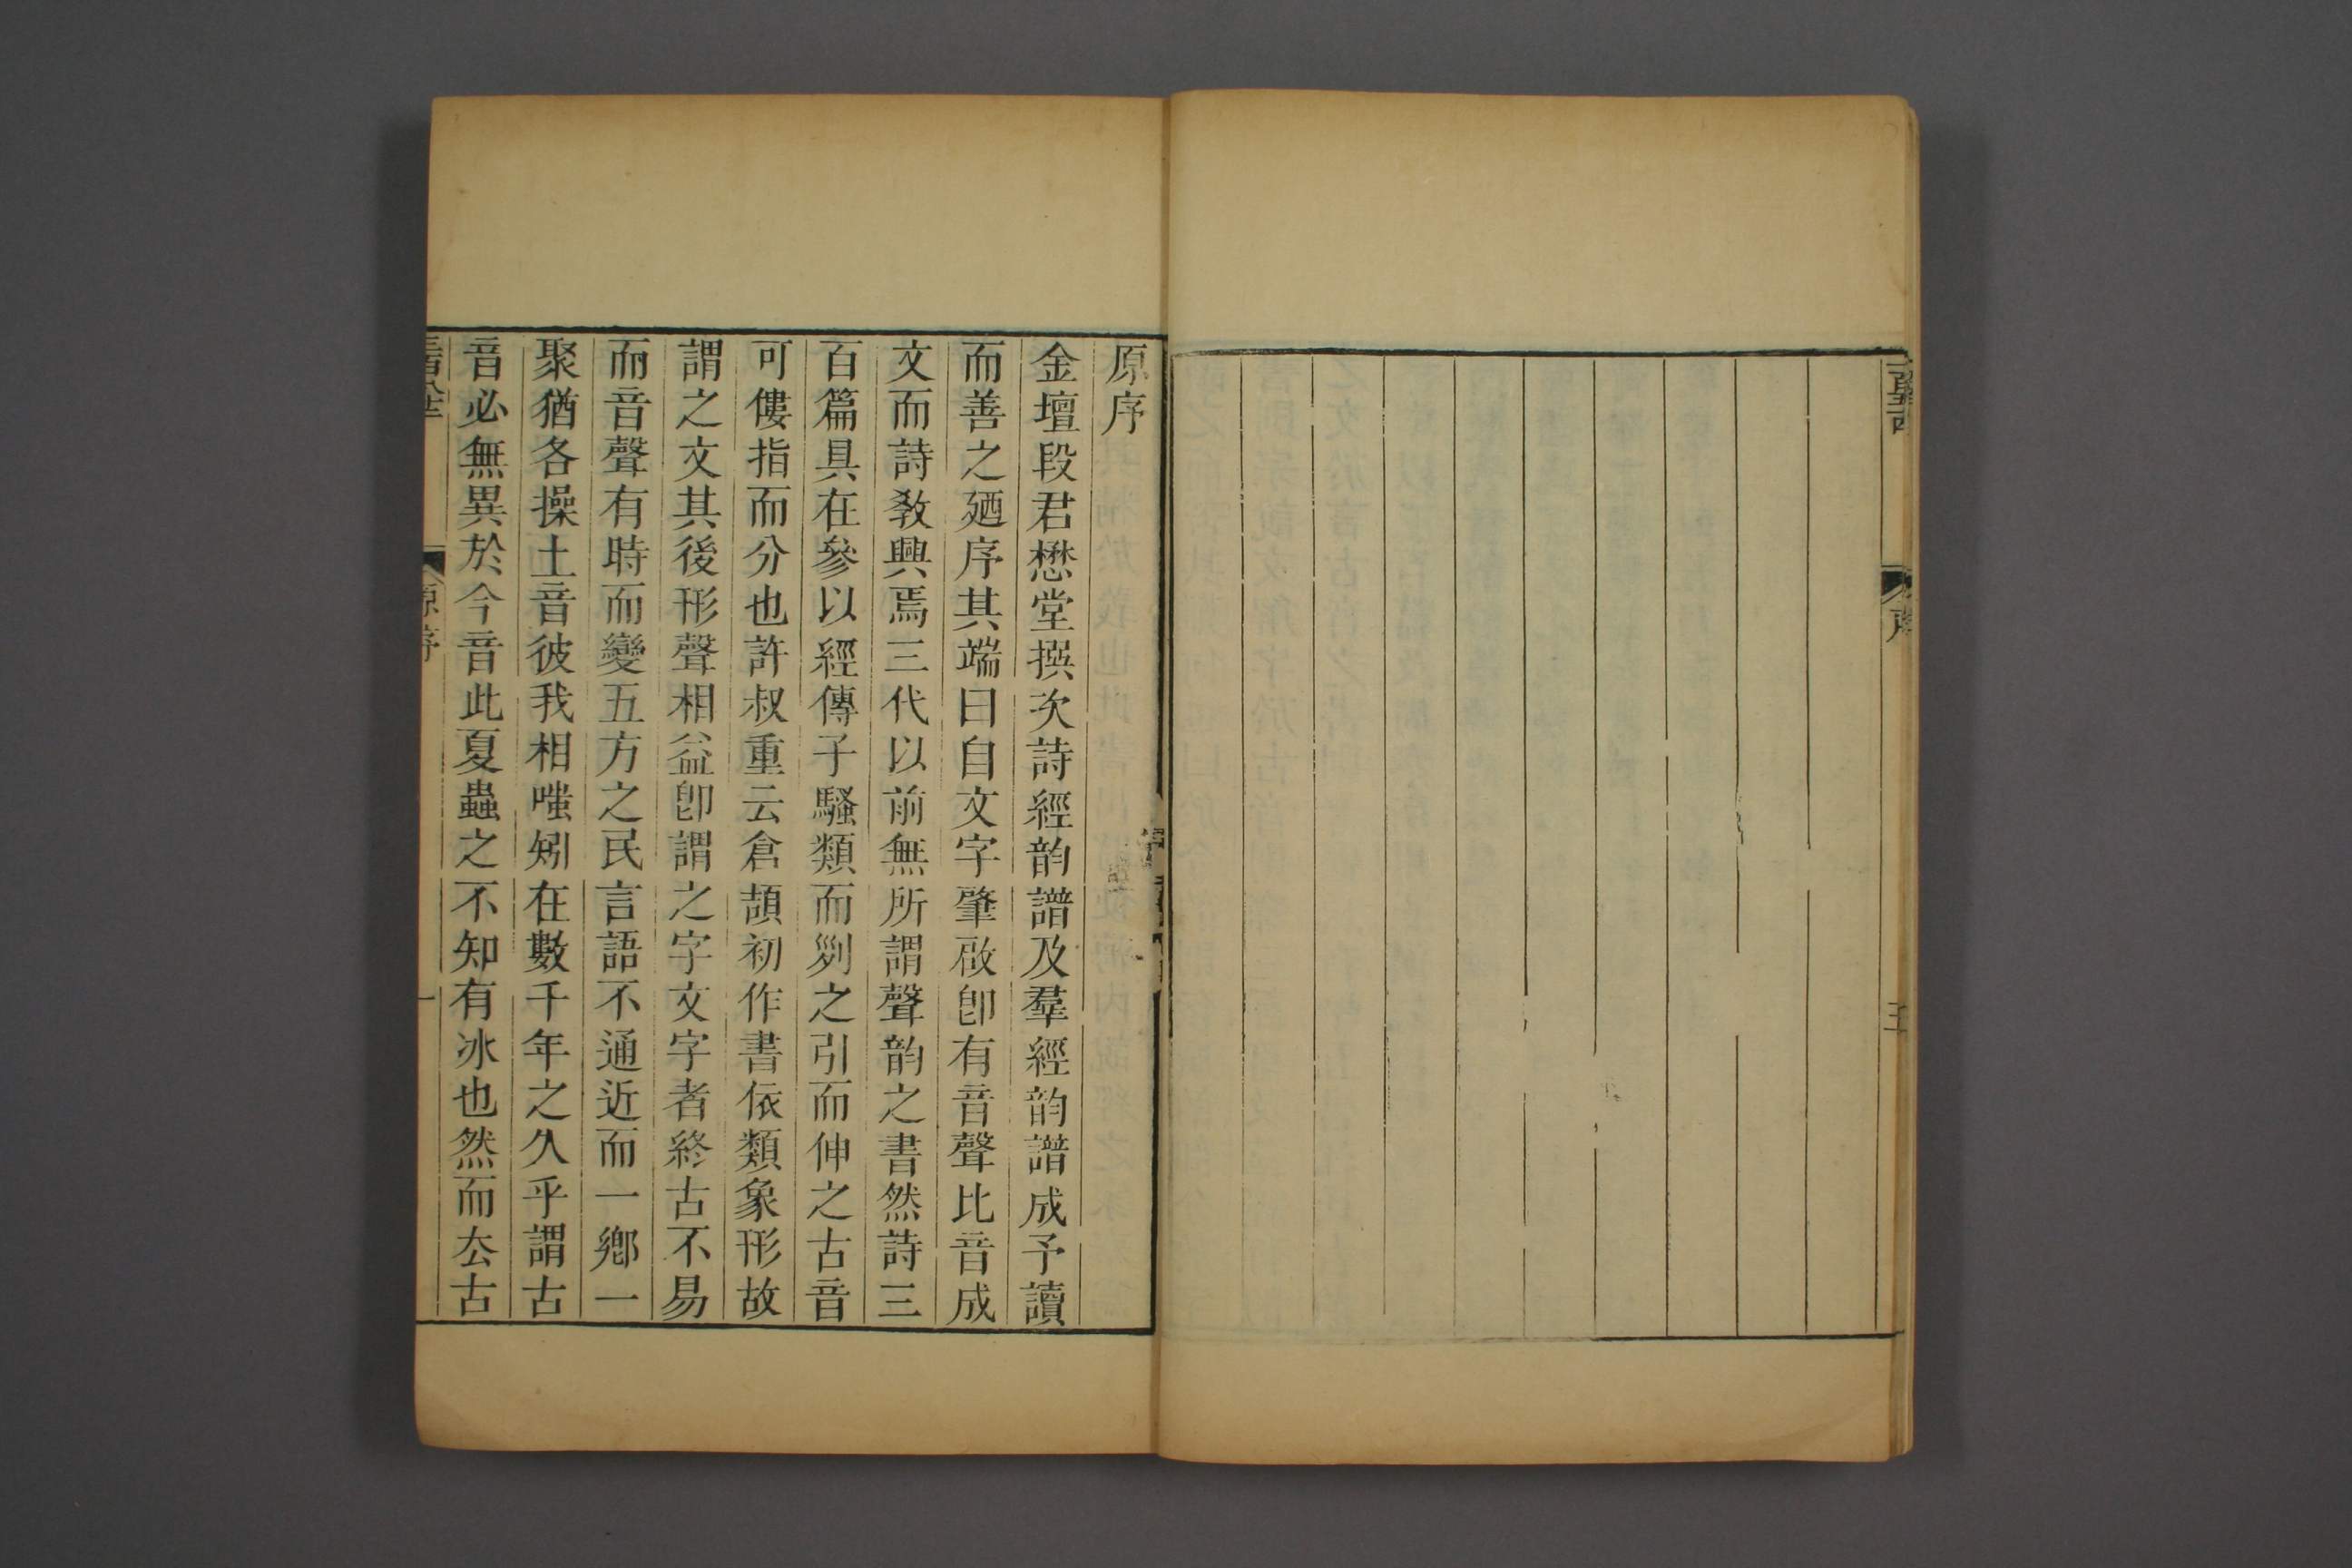 原序
金壇段君懋堂撰次詩經韵譜及羣經韵譜成予讀
而善之廼序其端曰自文字肇啟卽有音聲比音成
文而詩敎興焉三代以前無所謂聲韵之書然詩三
百篇具在參以經傳子騷類而剡之引而伸之古音
可僂指而分也許叔重云倉頡初作書依類象形故
謂之文其後形聲相益卽謂之字文字者終古不易
而音聲有時而變五方之民言語不通近而一鄉一
聚猶各操土音彼我相嗤矧在數千年之久乎謂古
音必無異於今音此夏蟲之不知有冰也然而去古
原序
一